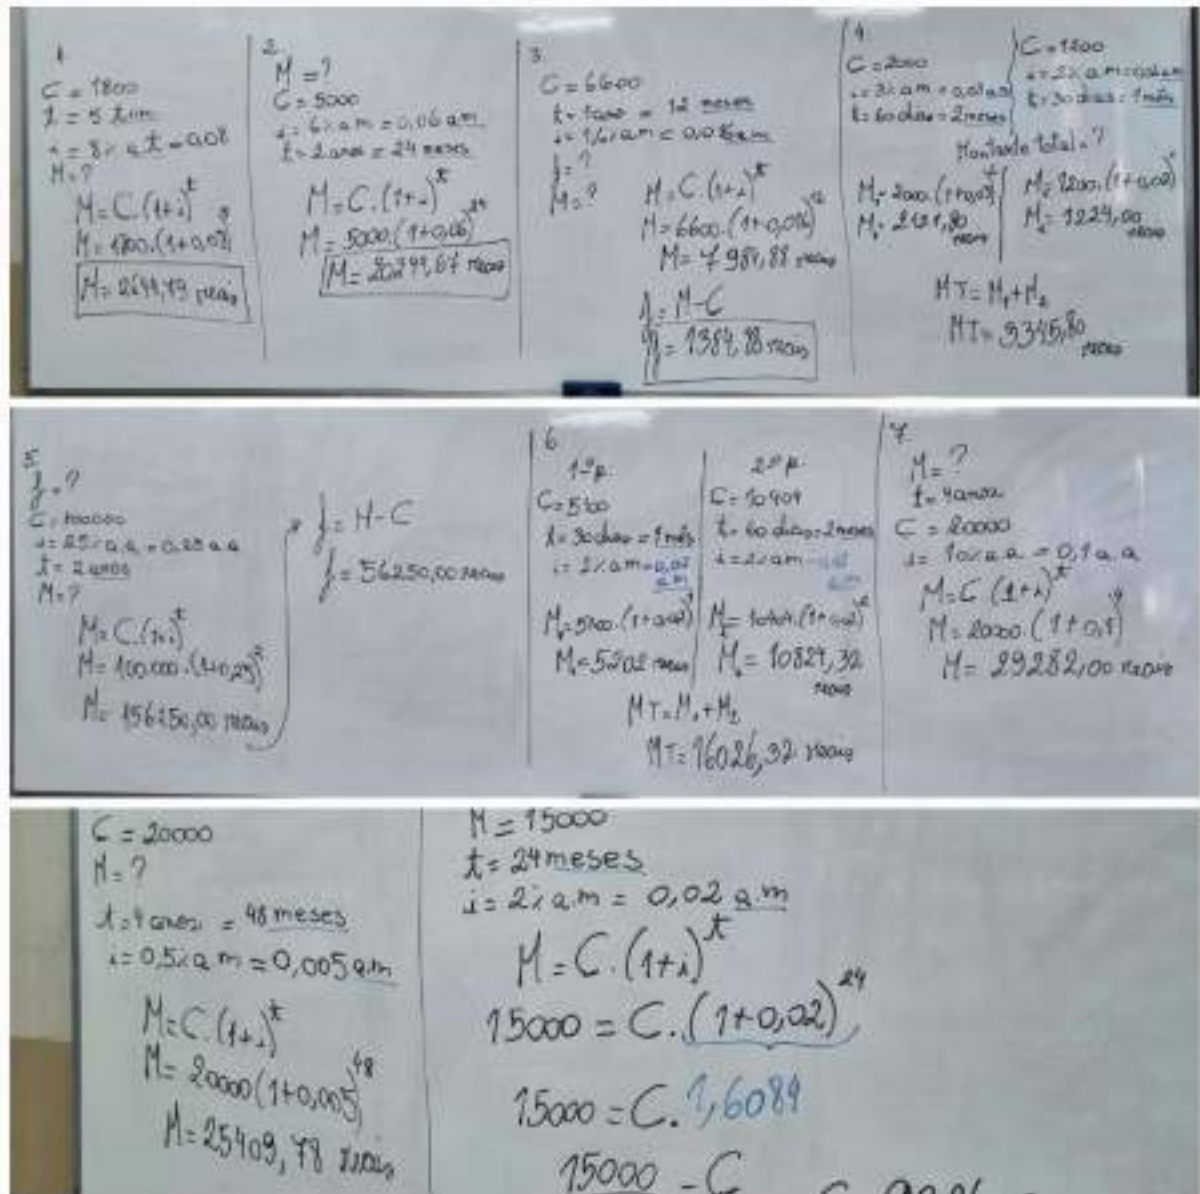 1
C = 1800
t = 5 trim
i = 8% a t = 0,08
M = ?
M = C.(1+i)^t
M = 1800.(1+0,08)
M = 2644,79 reais
2
M = ?
C = 5000
i = 6% am = 0,06 am
t = 2 anos = 24 meses
M = C.(1+i)^t
M = 5000.(1+0,06)^24
M = 20244,67 reais
3
C = 6600
t = 1 ano = 12 meses
i = 1,6% am = 0,016 am
j = ?
M = ?
M = C.(1+i)^t
M = 6600.(1+0,016)^12
M = 7984,88 reais
J = M-C
J = 1384,88 reais
4.
C = 2000
i = 3% am = 0,03 am
t = 60 dias = 2 meses
C = 1200
i = 2% am = 0,02 am
t = 30 dias = 1 mês
Montante total = ?
M₁ = 2000.(1+0,03)²
M₁ = 2121,80 reais
M₂ = 1200.(1+0,02)
M₂ = 1224,00 reais
MT = M₁+M₂
MT = 3345,80 reais
5
j = ?
C = 100000
i = 25% a.a = 0,25 a.a
t = 2 anos
M = ?
M = C.(1+i)^t
M = 100.000.(1+0,25)²
M = 156250,00 reais
j = M-C
j = 56250,00 reais
6
1º p.
C = 5100
t = 30 dias = 1 mês
i = 2% am = 0,02 a.m
M₁ = 5100.(1+0,02)¹
M₁ = 5202 reais
2º p.
C = 10404
t = 60 dias = 2 meses
i = 2% am = 0,02 a.m
M₂ = 10404.(1+0,02)²
M₂ = 10824,32 reais
MT = M₁+M₂
MT = 16026,32 reais
7.
M = ?
t = 4 anos
C = 20000
i = 10% a a = 0,1 a.a
M = C (1+i)^t
M = 20000.(1+0,1)^4
M = 29282,00 reais
C = 20000
M = ?
t = 4 anos = 48 meses
i = 0,5% a m = 0,005 a.m
M = C.(1+i)^t
M = 20000(1+0,005)^48
M = 25409,78 reais
M = 15000
t = 24 meses
i = 2% a.m = 0,02 a.m
M = C.(1+i)^t
15000 = C.(1+0,02)^24
15000 = C.1,6084
15000 = C